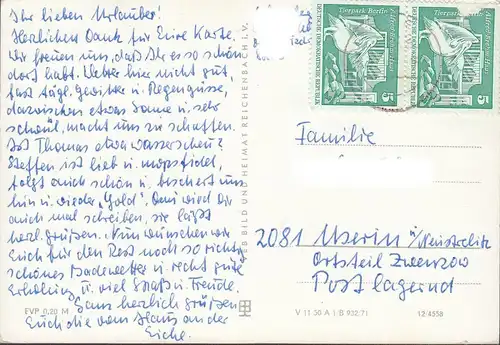 Ihr lieben Urlauber!
Herzlichen Dank für Eure Karte.
Wir freuen uns, daß Ihr es so schön
dort habt. Wetter hier nicht gut,
fast tägl. Gewitter u. Regengüsse,
dazwischen etwas Sonne u. sehr
schwül, macht uns zu schaffen.
Ist Thomas etwa wasserscheu?
Steffen ist lieb u. mopsfidel,
folgt auch schön u. beschert uns
hin u. wieder „Gold“. Omi wird Dir
auch mal schreiben, sie läßt
herzl. grüßen. Nun wünschen wir
Euch für den Rest noch so richtig
schönes Badewetter u. recht gute
Erholung u. viel Spaß u. Freude.
Ganz herzlich grüßen
Euch die vom Haus an der
Eiche.
EVP 0,20 M
VEB BILD UND HEIMAT REICHENBACH i. V.
Tierpark Berlin
Alfred-Brehm-Haus
DEUTSCHE DEMOKRATISCHE REPUBLIK
5
Tierpark Berlin
Alfred-Brehm-Haus
DEUTSCHE DEMOKRATISCHE REPUBLIK
5
Familie
2081 Userin ü/Neustrelitz
Ortsteil Zwenzow
Postlagernd
V 11 50 A 1 B 932/71
12/4558